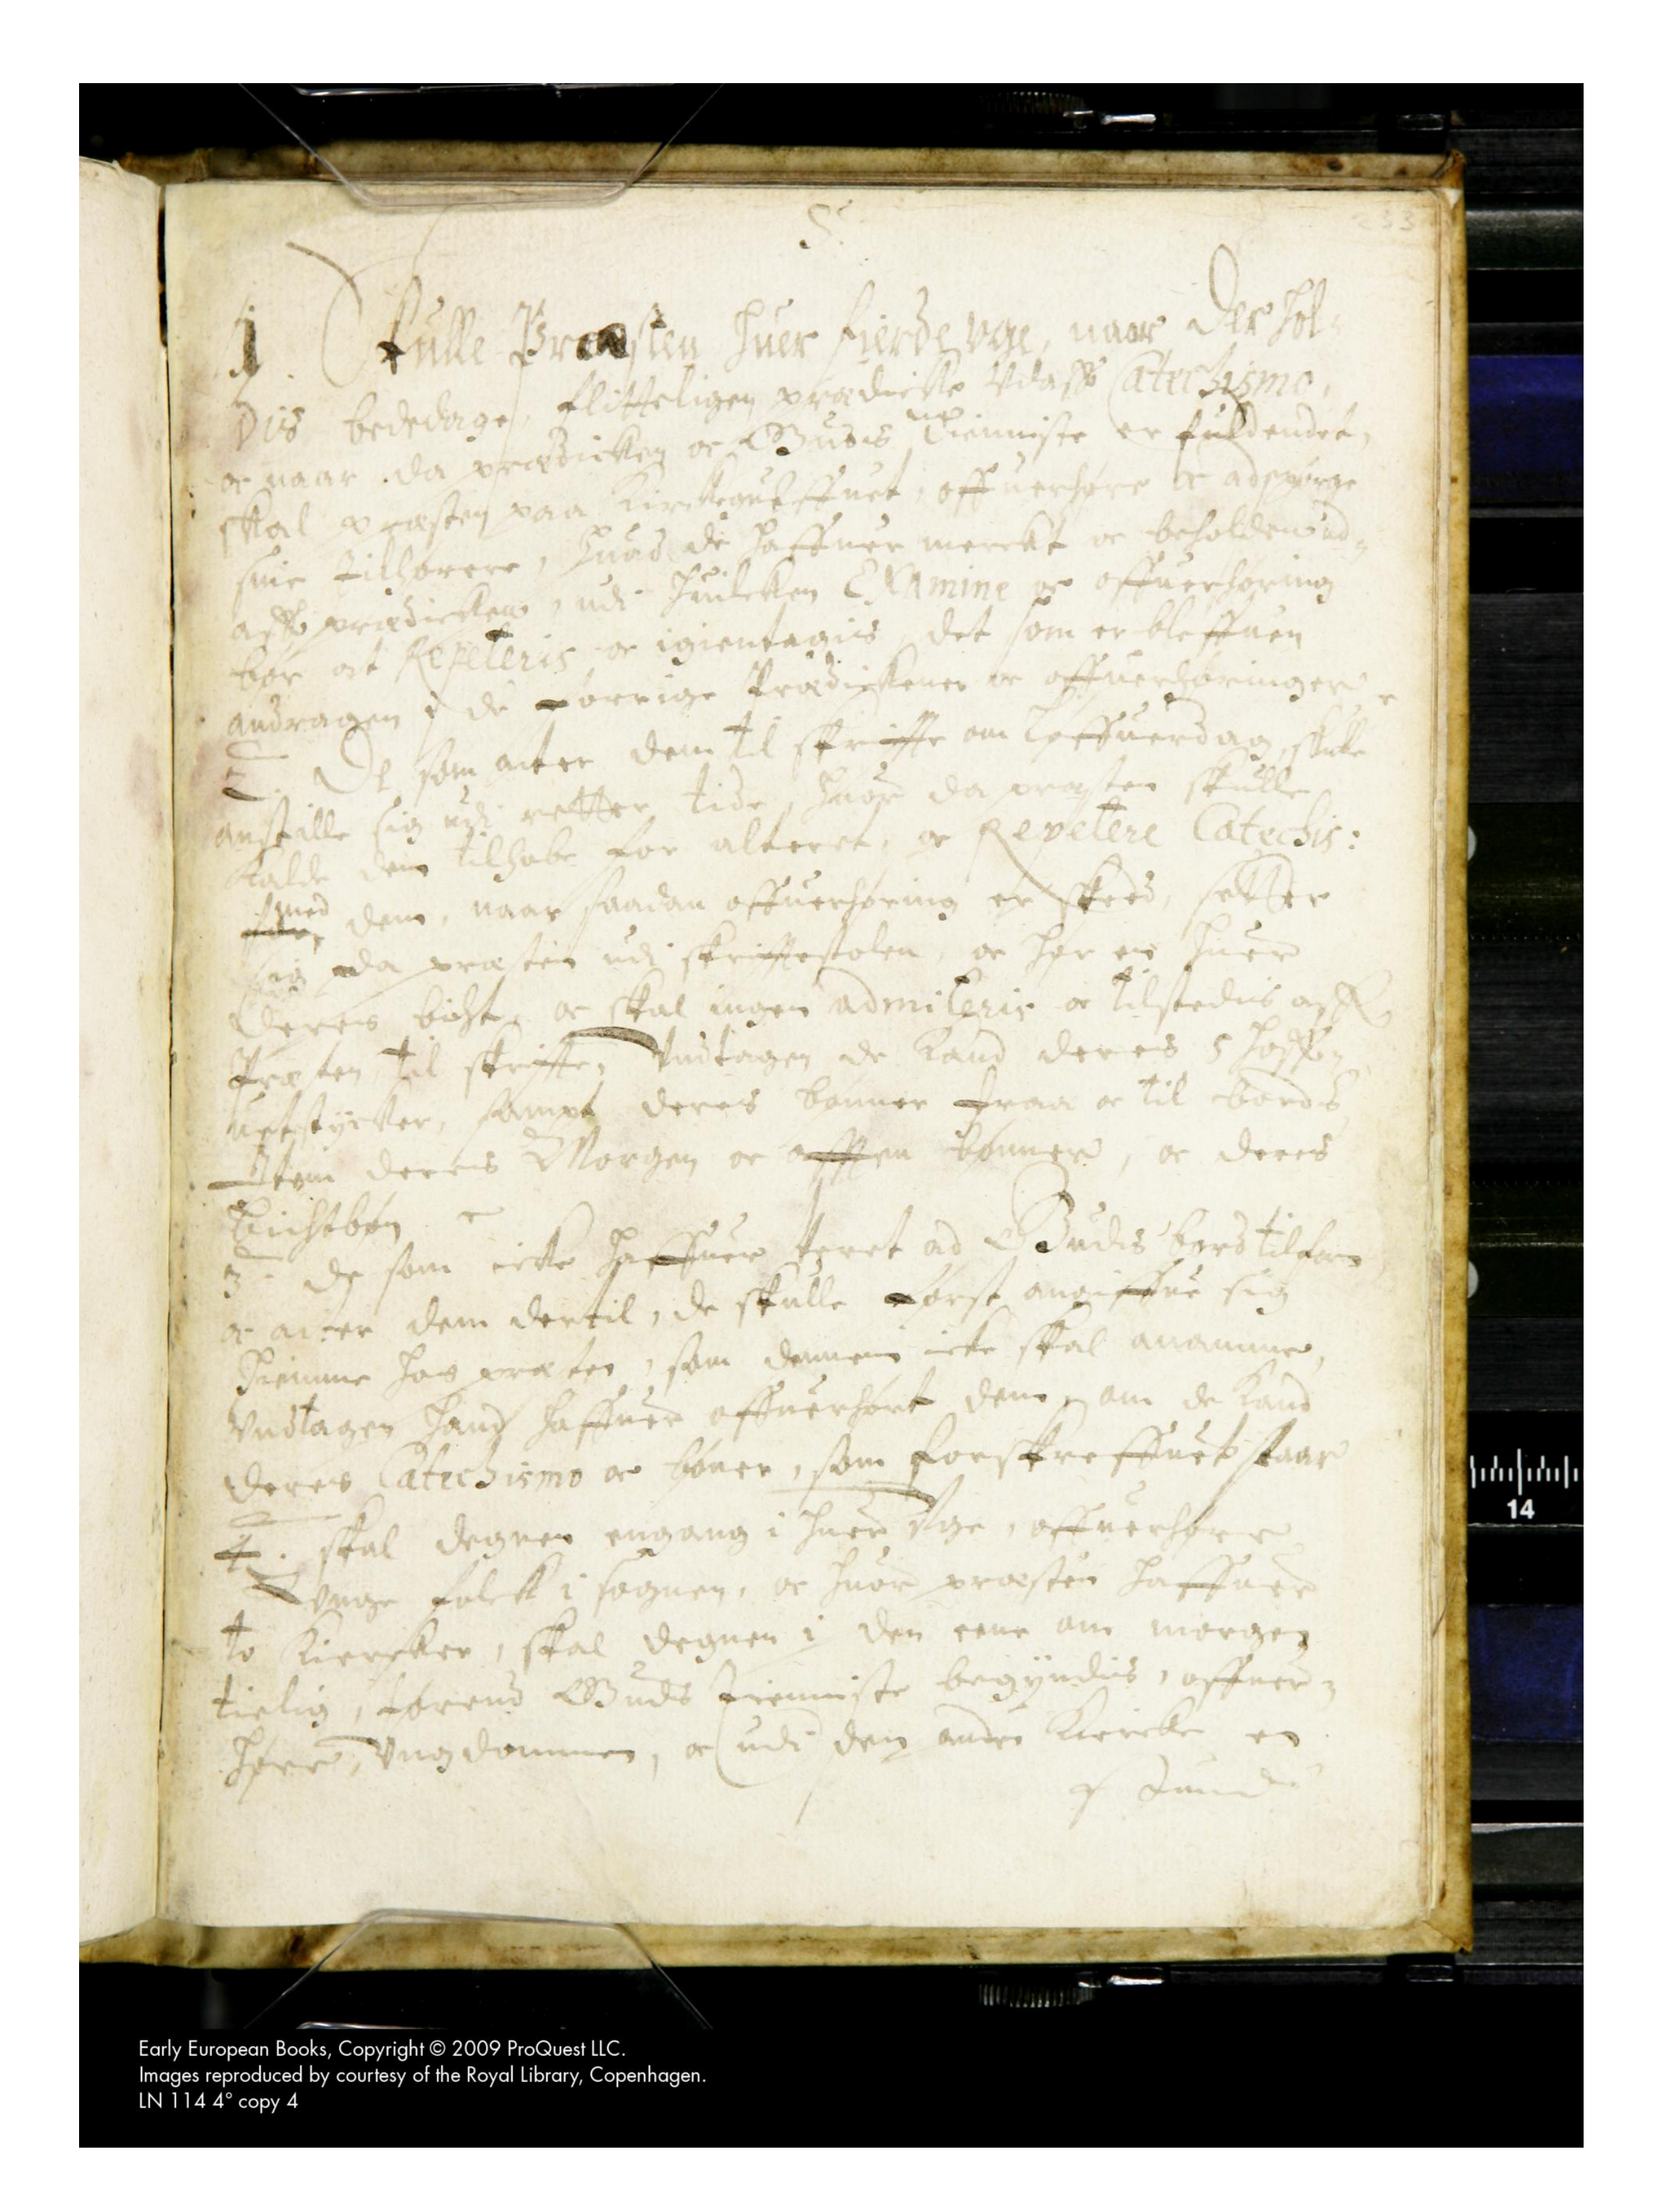 5.
233
1. Skulle Præsten huer fierde vge, naar der hol-
dis bededage, flitteligen prædicke vdaff Catechismo,
oc naar da prædicken oc Gudis tienniste er fuldendet,
skal præsten paa Kirckegulffuet, offuerhøre oc adspørge
sine tilhørere, huad de haffuer mercket oc beholden ud-
aff prædicken, udi huilcken Examine oc offuerhøring
bør at Repeteris oc igientagis det som er bleffuen
andragen i de forrige Prædickener oc offuerhøringer
2. De som acter dem til skriffte om Løffuerdag, skulle
anstille sig udi retter tide, huor da præsten skulle
kalde dem tilhobe for alteret, oc Repetere Catechis:
med dem, naar saadan offuerhøring er skeed, setter
sig da præsten udi skrifftestolen, oc hør en huer
deres oc skal ingen admitteris oc tilstedis aff
Præsten til skriffte, Undtagen de kand deres 5 hoff-
uetstycker, sampt deres bønner fraa oc til bords
Item deres Morgen oc afften bønner, oc deres
3. De som icke haffuer veret ad Gudis bord tilforn
oc acter dem dertil, de skulle først angiffue sig
hiemme hos præsten, som dennem icke skal anamme,
Vndtagen hand haffuer offuerhørt dem, om de kand
deres Catechismo oc bøner, som forskreffuet staar
4. skal degnen engang i huer Vge, offuerhøre
vnge folck i sognen, oc huor præsten haffuer
to Kiercker, skal degnen i den eene om morgen
tielig, førend Guds tienniste begyndis, offuer-
høre Vngdommen, oc udi den anden Kiercke en
stund
14
Early European Books, Copyright © 2009 ProQuest LLC.
Images reproduced by courtesy of the Royal Library, Copenhagen.
LN 114 4° copy 4